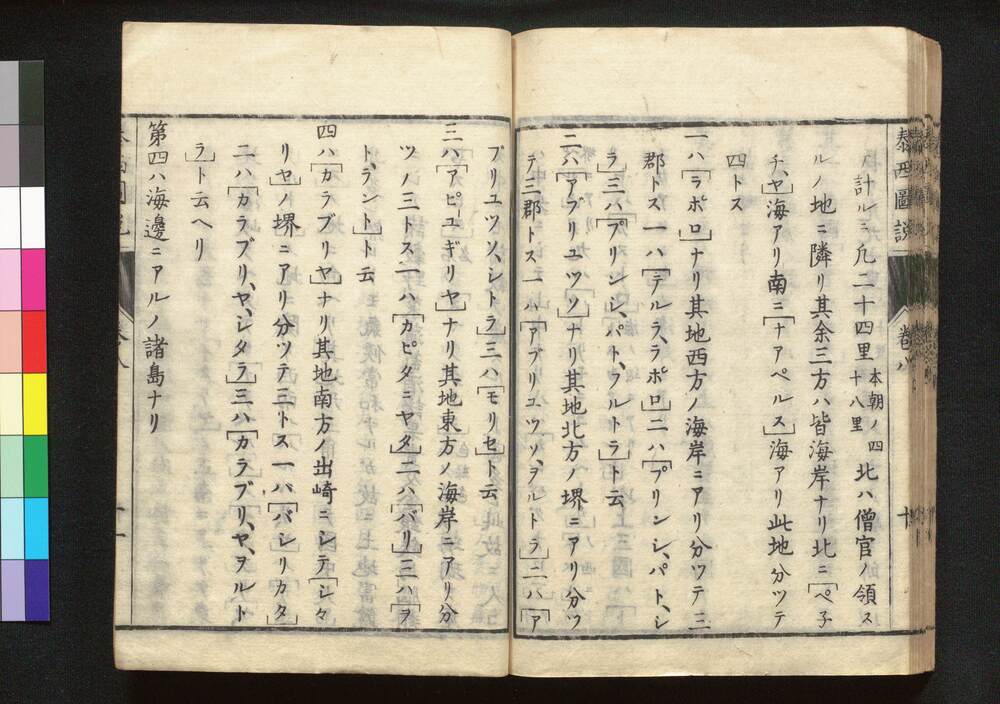 泰西圖説
卷八
十
ノ計ルニ凡二十四里本朝ノ四十八里北ハ僧官ノ領ス
ルノ地ニ隣リ其余三方ハ皆海岸ナリ北ニ「ペ子
チ、ヤ」海アリ南ニ「ナアペルス」海アリ此地分ツテ
四トス
一ハ「ラポロ」ナリ其地西方ノ海岸ニアリ分ツテ三
郡トス一ハ「テルラ、ラポロ」二ハ「プリンシ、パト、シ
ラ」三ハ「プリンシ、パト、フルトラ」ト云
二ハ「アブリユツソ」ナリ其地北方ノ堺ニアリ分ツ
テ三郡トス一ハ「アブリユツソ、ヲルトラ」二ハ「ア
ブリユツソ、シトラ」三ハ「モリセ」ト云
三ハ「アピユーギリヤ」ナリ其地東方ノ海岸ニアリ分
ツノ三トス一ハ「カピタニヤタ」二ハ「バリ」三ハ「ヲ
ト、ラント」ト云
四ハ「カラブリヤ」ナリ其地南方ノ出崎ニシテ「シ々
リヤ」ノ堺ニアリ分ツテ三トス一バ「バシリカタ」
二ハ「カラブリ、ヤ、シタラ」三ハ「カラブリ、ヤ、ヲルト
ラ」ト云ヘリ
第四ハ海邊ニアルノ諸島ナリ